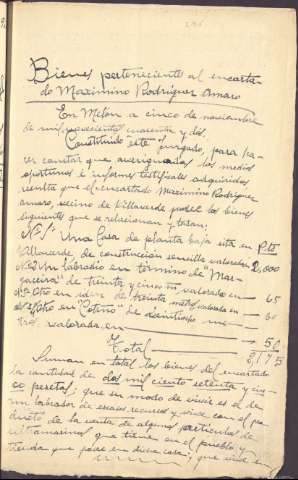 Bienes perteneciente al encarta-
do Maximino Rodriguez Amaro
En Melón a cinco de noviembre
de mil novecientos cuarenta y dos.
Constituido este juzgado, para ha-
cer constar que averiguados los medios
oportunos e informes testificales adquiridos
resulta que el encartado Maximino Rodriguez
Amaro, vecino de Villaverde posee los bienes
siguientes que se relacionan y tasan:
Nº 1º Una Casa de planta baja sita en Pts
Villaverde de construcción sencilla valorada en 2,000
Nº 2 Un labradio en término de "Mar-
" de treinta y cinco valorado en — 65
Nº 3 Otro en idem de treinta valorado en — 60
Nº 4 Otro en "Cotiño" de veintiocho me-
tros valorado en — 50
Total — 2175
Suman en total los bienes del encartado
la cantidad de dos mil ciento setenta y cin-
co pesetas; que su modo de vivir es el de
un labrador de escasos recursos y vive con el pro-
ducto de la venta de algunos particulas de
ultramarinos que tiene en el pueblo y
tienda que posee en dicha casa; que vive en